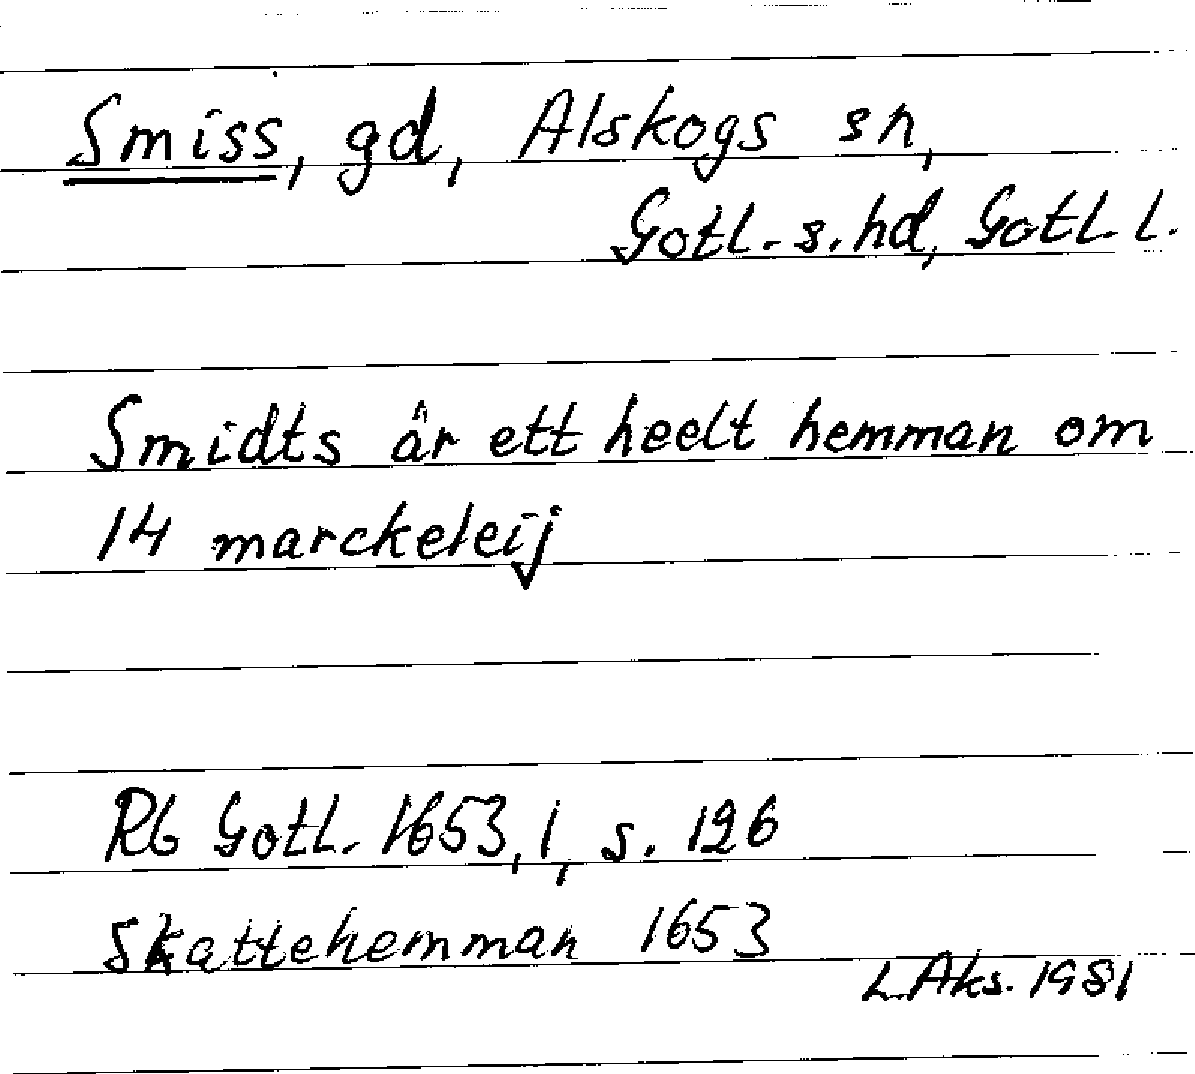 Smiss, gd, Alskogs sn,
Gotl. s. hd, Gotl. l.
Smidts är ett heelt hemman om
14 marckeleij
Rb Gotl. 1653, 1, s. 126
Skattehemman 1653
L. Aks. 1981